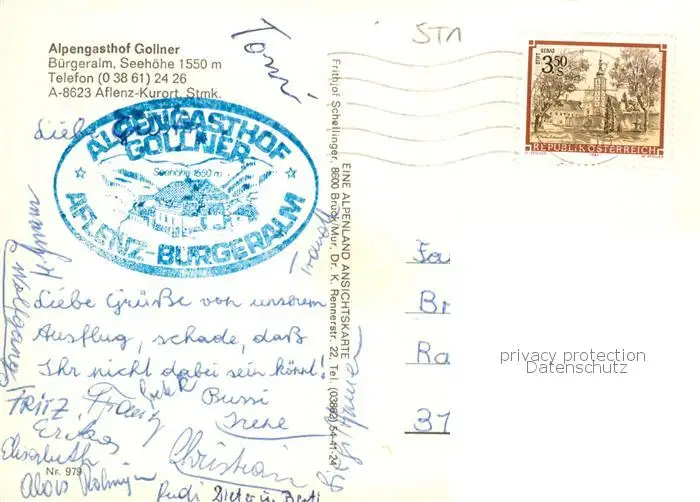 Alpengasthof Gollner
Bürgeralm, Seehöhe 1550 m
Telefon (0 38 61) 24 26
A-8623 Aflenz-Kurort, Stmk.
Tomi
STM
Liebe
ALPENGASTHOF
GOLLNER
Seehöhe 1550 m
AFLENZ-BÜRGERALM
Liebe Grüße von unserem
Ausflug, schade, daß
Ihr nicht dabei sein könnt!
Bussi
Irene
Wolfgang
FRITZ
Franz
Erika
Elisabeth
Christian
Alois
Rudi Dieter u. Berti
Nr. 979
EINE ALPENLAND ANSICHTSKARTE
Frithjof Schellinger, 8600 Bruck/Mur, Dr. K. Rennerstr. 22, Tel. (03862) 54-41-24
STIFT GERAS
3.50
S
REPUBLIK ÖSTERREICH
Fa
Br
Ra
31
privacy protection
Datenschutz